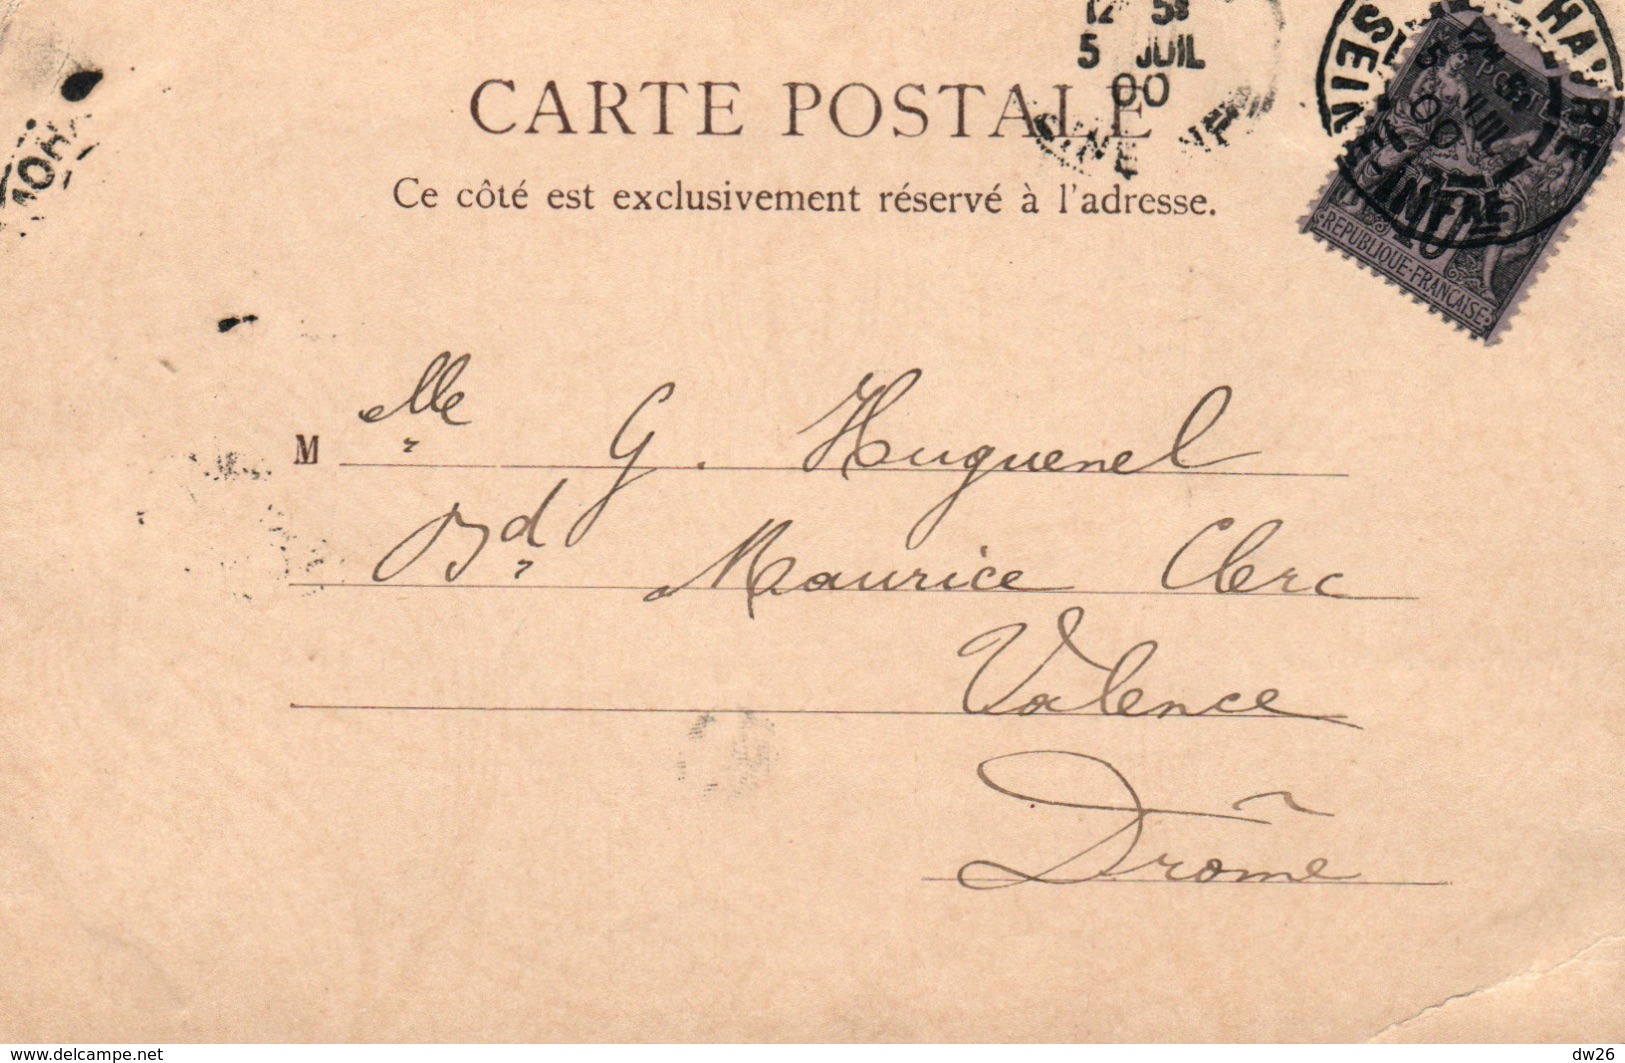 12 5
5 JUIL
00
LE HAVRE
CARTE POSTALE
Ce côté est exclusivement réservé à l'adresse.
10
REPUBLIQUE·FRANÇAISE
Melle G. Huguenel
Bd Maurice Clerc
Valence
Drôme
www.delcampe.net
dw26